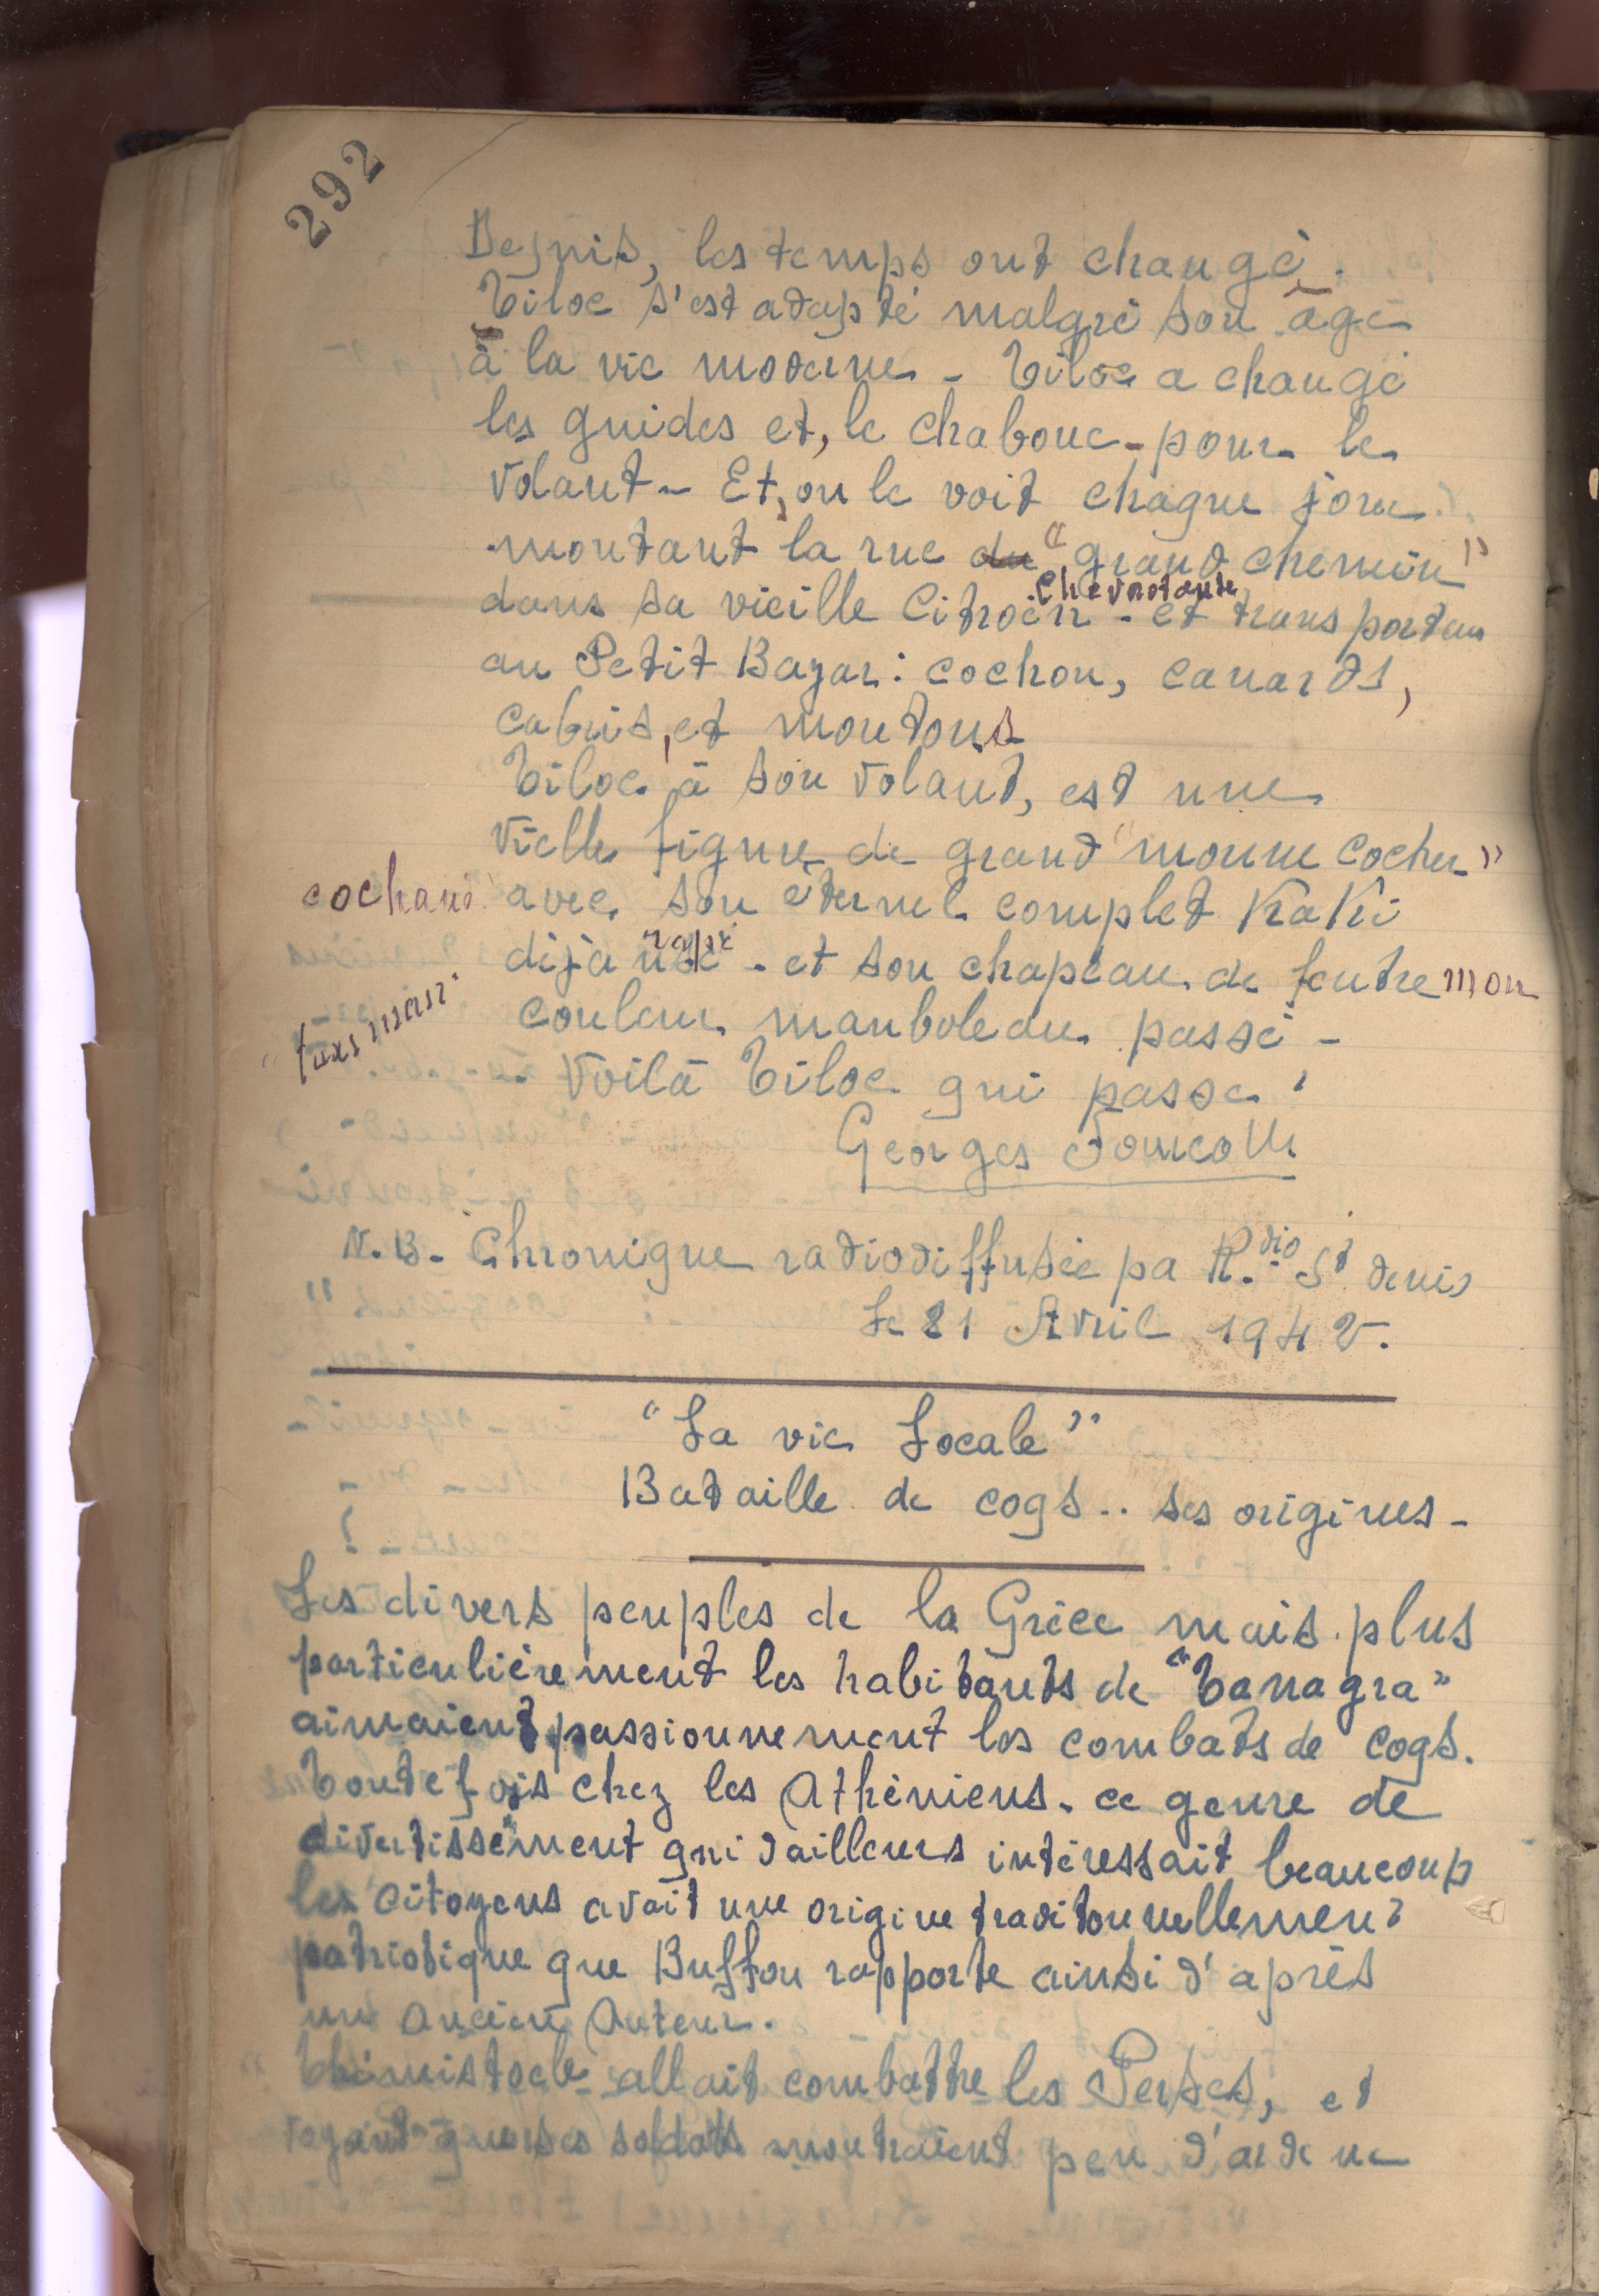 292
Depuis, les temps ont changé.
Tiloc s'est adapté malgré son âge
à la vie moderne - Tiloc a changé
les guides et, le chabouc - pour le
volant - Et, on le voit chaque jour
montant la rue du "grand chemin"
chevrotante
dans sa vieille Citroën - et transportan
au Petit Bazar : cochon, canards,
cabris, et moutons
Tiloc à son volant, est une
vielle figure de grand "moune cocher"
avec son éternel complet KaKi
rapé
déjà usé - et son chapeau de feutre mou
couleur manboleau passé -
Voilà Tiloc qui passe !
Georges Fourcade
N.B. - Chronique radiodiffusée pa R.dio St denis
Le 21 Avril 1942.
"La vie Locale"
Bataille de coqs .. ses origines -
Les divers peuples de la Grèce mais plus
particulièrement les habitants de "Tanagra"
aimaient passionnement les combats de coqs.
Toutefois chez les Athéniens - ce genre de
divertissement qui d'ailleurs intéressait beaucoup
les citoyens avait une origine traditonnellement
patriotique que Buffon rapporte ainsi d'après
un ancien auteur.
Thémistocle allait combattre les Perses, et
voyant que ses soldats montraient peu d'ardeur